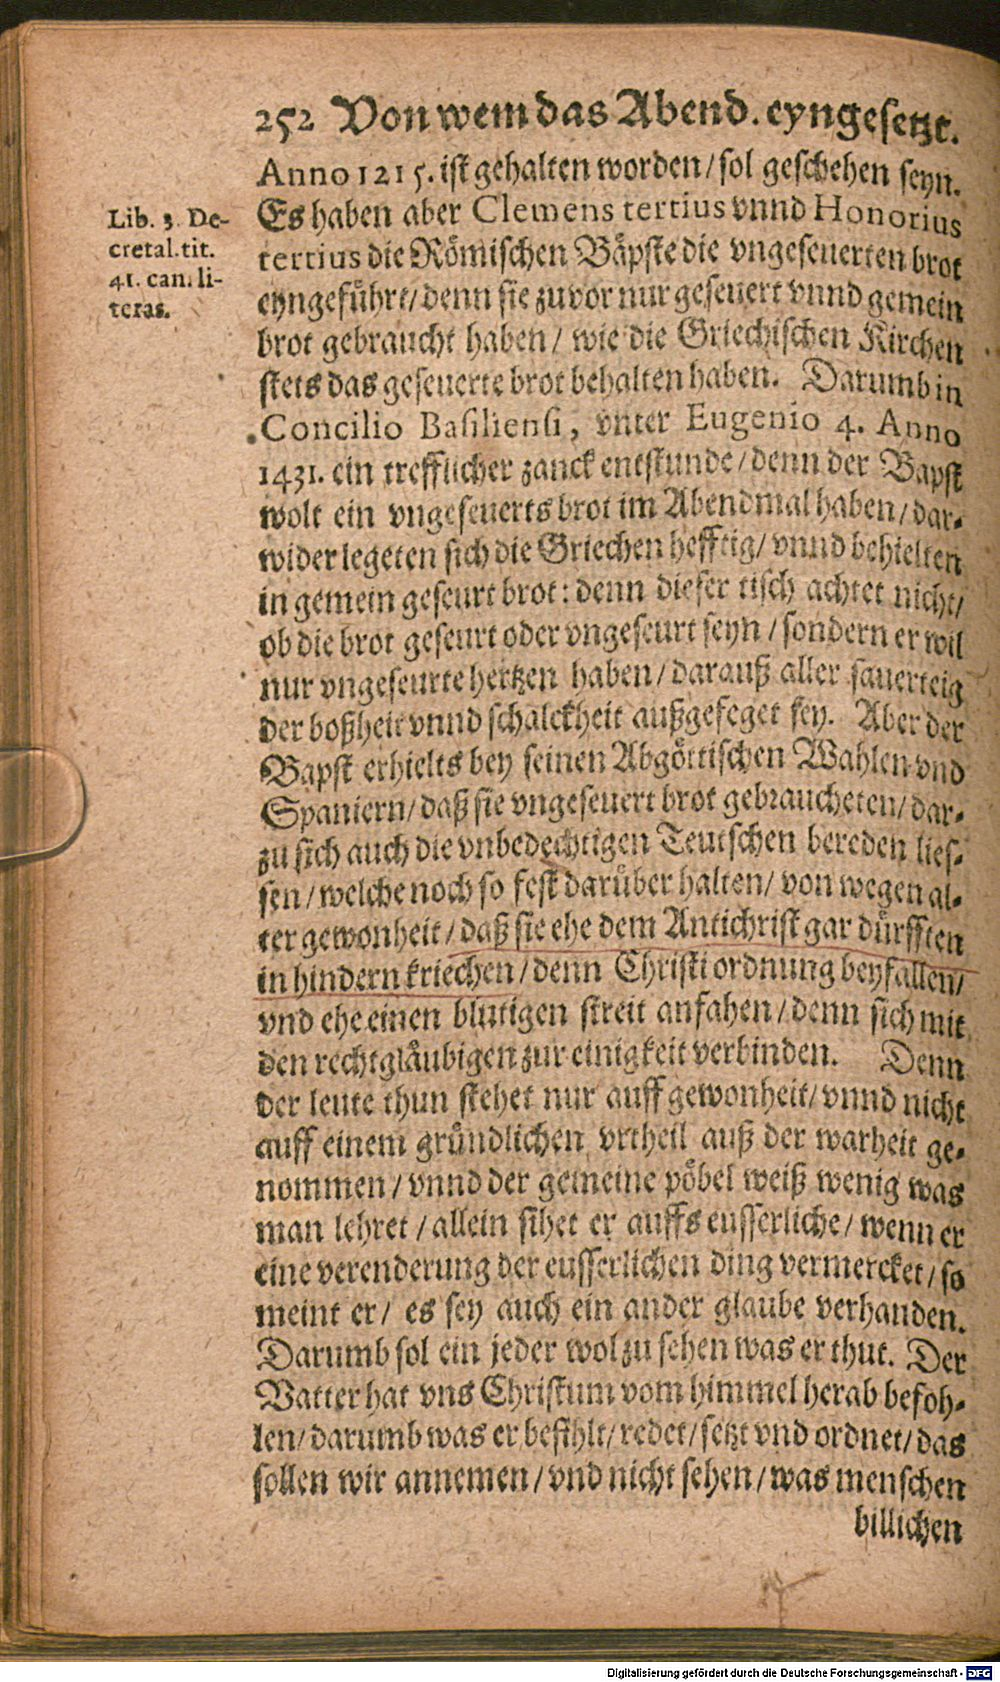 252 Von wem das Abend. eyngesetzt.
Anno 1215. ist gehalten worden/ sol geschehen seyn.
Es haben aber Clemens tertius vnnd Honorius
tertius die Römischen Bäpste die vngeseuerten brot
eyngeführt/ denn sie zuvor nur geseuert vnnd gemein
brot gebraucht haben/ wie die Griechischen Kirchen
stets das geseuerte brot behalten haben. Darumb in
Concilio Basiliensi, vnter Eugenio 4. Anno
1431. ein trefflicher zanck entstunde/ denn der Bapst
wolt ein vngeseuerts brot im Abendmal haben/ dar-
wider legeten sich die Griechen hefftig/ vnnd behielten
in gemein geseurt brot: denn dieser tisch achtet nicht/
ob die brot geseurt oder vngeseurt seyn/ sondern er wil
nur vngeseurte hertzen haben/ darauß aller sauerteig
der boßheit vnnd schalckheit außgefeget sey. Aber der
Bapst erhielts bey seinen Abgöttischen Wahlen vnd
Spaniern/ daß sie vngeseuert brot gebraucheten/ dar-
zu sich auch die vnbedechtigen Teutschen bereden lies-
sen/ welche noch so fest darüber halten/ von wegen al-
ter gewonheit/ daß sie ehe dem Antichrist gar dürfften
in hindern kriechen/ denn Christi ordnung beyfallen/
vnd ehe einen blutigen streit anfahen/ denn sich mit
den rechtgläubigen zur einigkeit verbinden. Denn
der leute thun stehet nur auff gewonheit/ vnnd nicht
auff einem gründlichen vrtheil auß der warheit ge-
nommen/ vnnd der gemeine pöbel weiß wenig was
man lehret/ allein sihet er auffs eusserliche/ wenn er
eine verenderung der eusserlichen ding vermercket/ so
meint er/ es sey auch ein ander glaube verhanden.
Darumb sol ein jeder wol zu sehen was er thut. Der
Vatter hat vns Christum vom himmel herab befoh-
len/ darumb was er befihlt/ redet/ setzt vnd ordnet/ das
sollen wir annemen/ vnd nicht sehen/ was menschen
billichen
Lib. 3. De-
cretal. tit.
41. can. li-
teras.
Digitalisierung gefördert durch die Deutsche Forschungsgemeinschaft - DFG